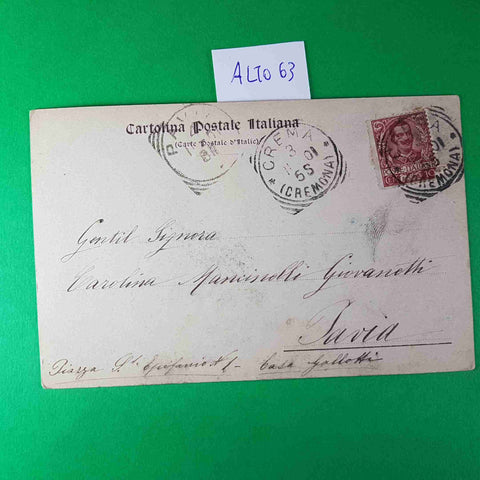 ALTO 63
Cartolina Postale Italiana
(Carte Postale d'Italie)
PAVIA
CREMA
3
01
5S
(CREMONA)
Gentil Signora
Carolina Mancinelli Giovanotti
Pavia
Piazza S. Epifanio N 1 - Casa Gallotti